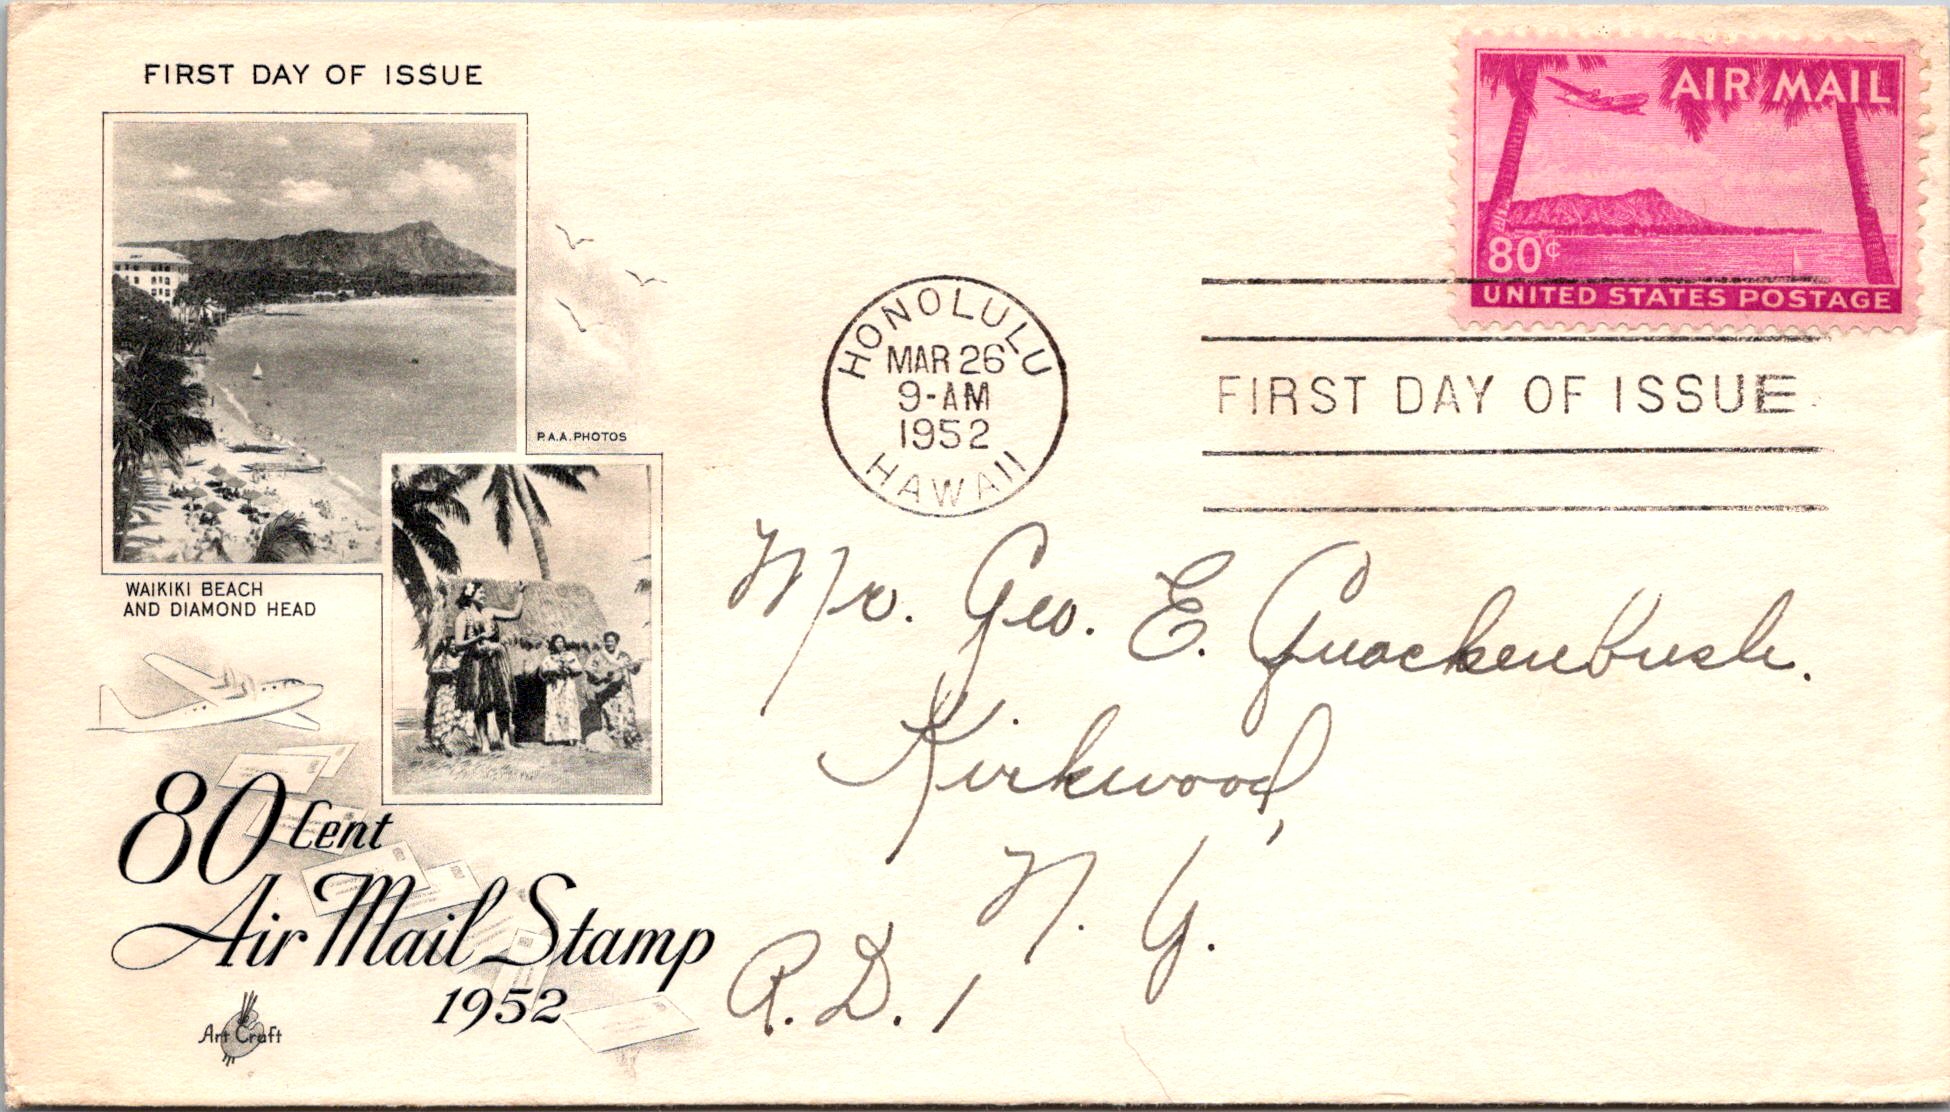 FIRST DAY OF ISSUE
AIR MAIL
80¢
UNITED STATES POSTAGE
HONOLULU
MAR 26
9-AM
1952
HAWAII
FIRST DAY OF ISSUE
P.A.A. PHOTOS
WAIKIKI BEACH
AND DIAMOND HEAD
Mr. Geo. E. Quackenbush.
Kirkwood,
N. Y.
R. D. 1
80 Cent
Air Mail Stamp
1952
Art Craft